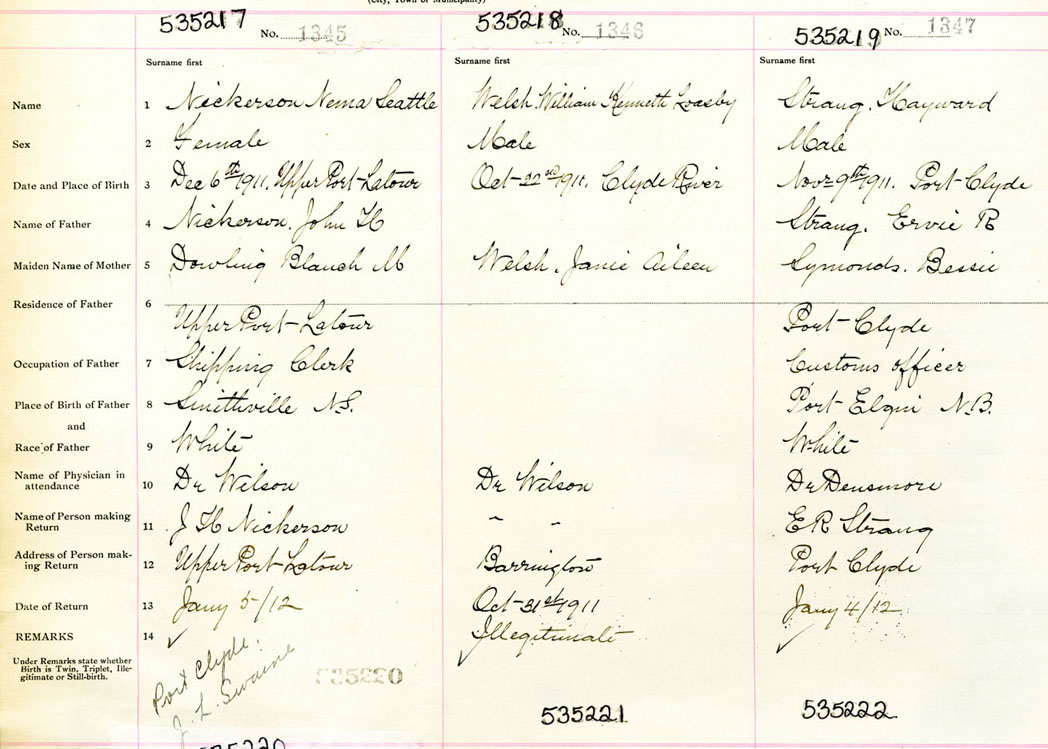 (City, Town or Municipality)
535217 No. 1345 535218 No. 1346 535219 No. 1347
Surname first Surname first Surname first
Name 1 Nickerson Nema Seattle Welsh. William Kenneth Loasby Strang. Hayward
Sex 2 Female Male Male
Date and Place of Birth 3 Dec 6th 1911. Upper Port Latour Oct 22nd 1911. Clyde River Novr 9th 1911. Port Clyde
Name of Father 4 Nickerson. John H Strang. Ervie R
Maiden Name of Mother 5 Dowling Blanch M Welsh. Janie Aileen Symonds. Bessie
Residence of Father 6
Upper Port Latour Port Clyde
Occupation of Father 7 Shipping Clerk Customs officer
Place of Birth of Father 8 Smithville N.S. Port Elgin N.B.
and
Race of Father 9 White White
Name of Physician in
attendance 10 Dr Wilson Dr Wilson Dr Densmore
Name of Person making
Return 11 J H Nickerson " " E R Strang
Address of Person mak-
ing Return 12 Upper Port Latour Barrington Port Clyde
Date of Return 13 Jany 5/12 Oct 31st 1911 Jany 4/12
REMARKS 14 ✓ Illegitimate
Under Remarks state whether
Birth is Twin, Triplet, Ille-
gitimate or Still-birth.
Port Clyde.
J. L. Swaine
535220
535221 535222
535220